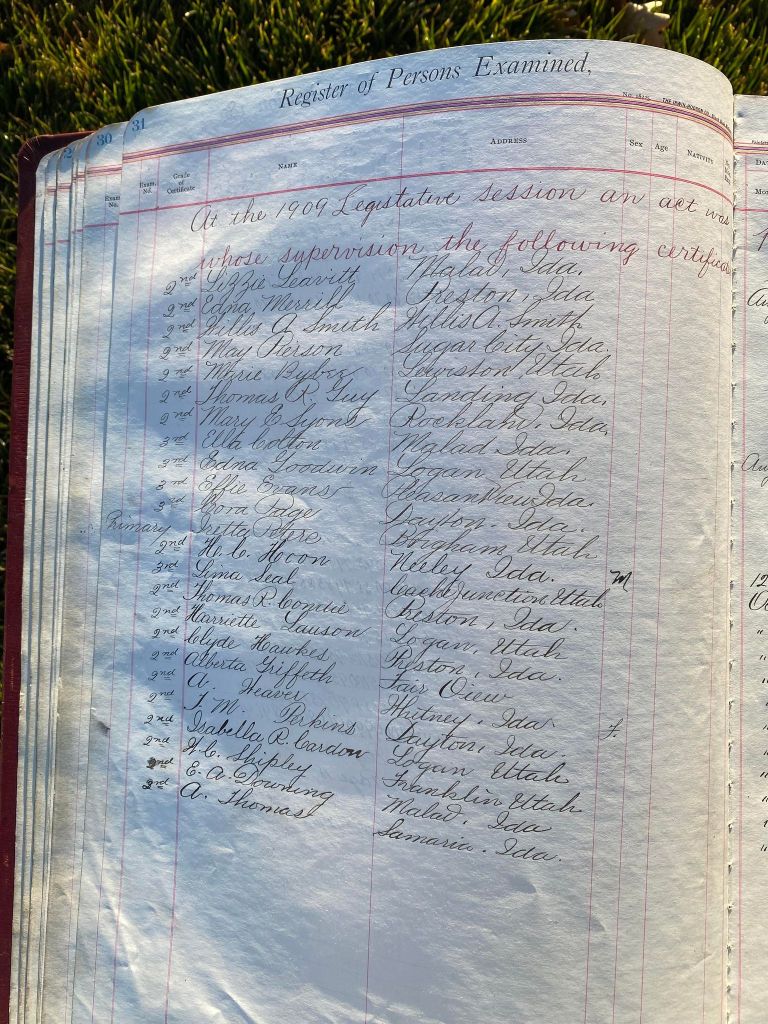 Register of Persons Examined,
30 31
Exam. No. Grade of Certificate NAME ADDRESS Sex Age NATIVITY
At the 1909 Legislative session an act was
whose supervision the following certifica
2nd Lizzie Leavitt Malad, Ida.
2nd Edna Merrill Preston, Ida
2nd Willis A Smith Willis A. Smith
2nd May Pierson Sugar City Ida.
2nd Marie Bybee Lewiston, Utah
2nd Thomas R. Guy Landing Ida.
2nd Mary E Lyons Rockland, Ida.
3rd Ella Colton Malad Ida.
3rd Edna Goodwin Logan Utah
3rd Effie Evans Pleasantview Ida.
3rd Cora Page Dayton. Ida.
Primary Iretta Brigham Utah
2nd H. C. Hoon Neley Ida. M
3rd Lima Seal Cache Junction Utah
2nd Thomas R. Condie Preston, Ida.
2nd Harriette Lauson Logan, Utah
2nd Clyde Hawkes Preston, Ida.
2nd Alberta Griffeth Fair View
2nd A. Weaver Whitney, Ida
2nd M. Perkins Dayton, Ida. f.
2nd Isabella R. Cardon Logan Utah
2nd W. C. Shipley Franklin Utah
2nd E. A. Downing Malad, Ida
2nd A. Thomas Samaria. Ida.